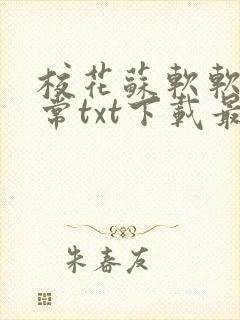 校花蘇軟軟
常txt下載最
朱春友